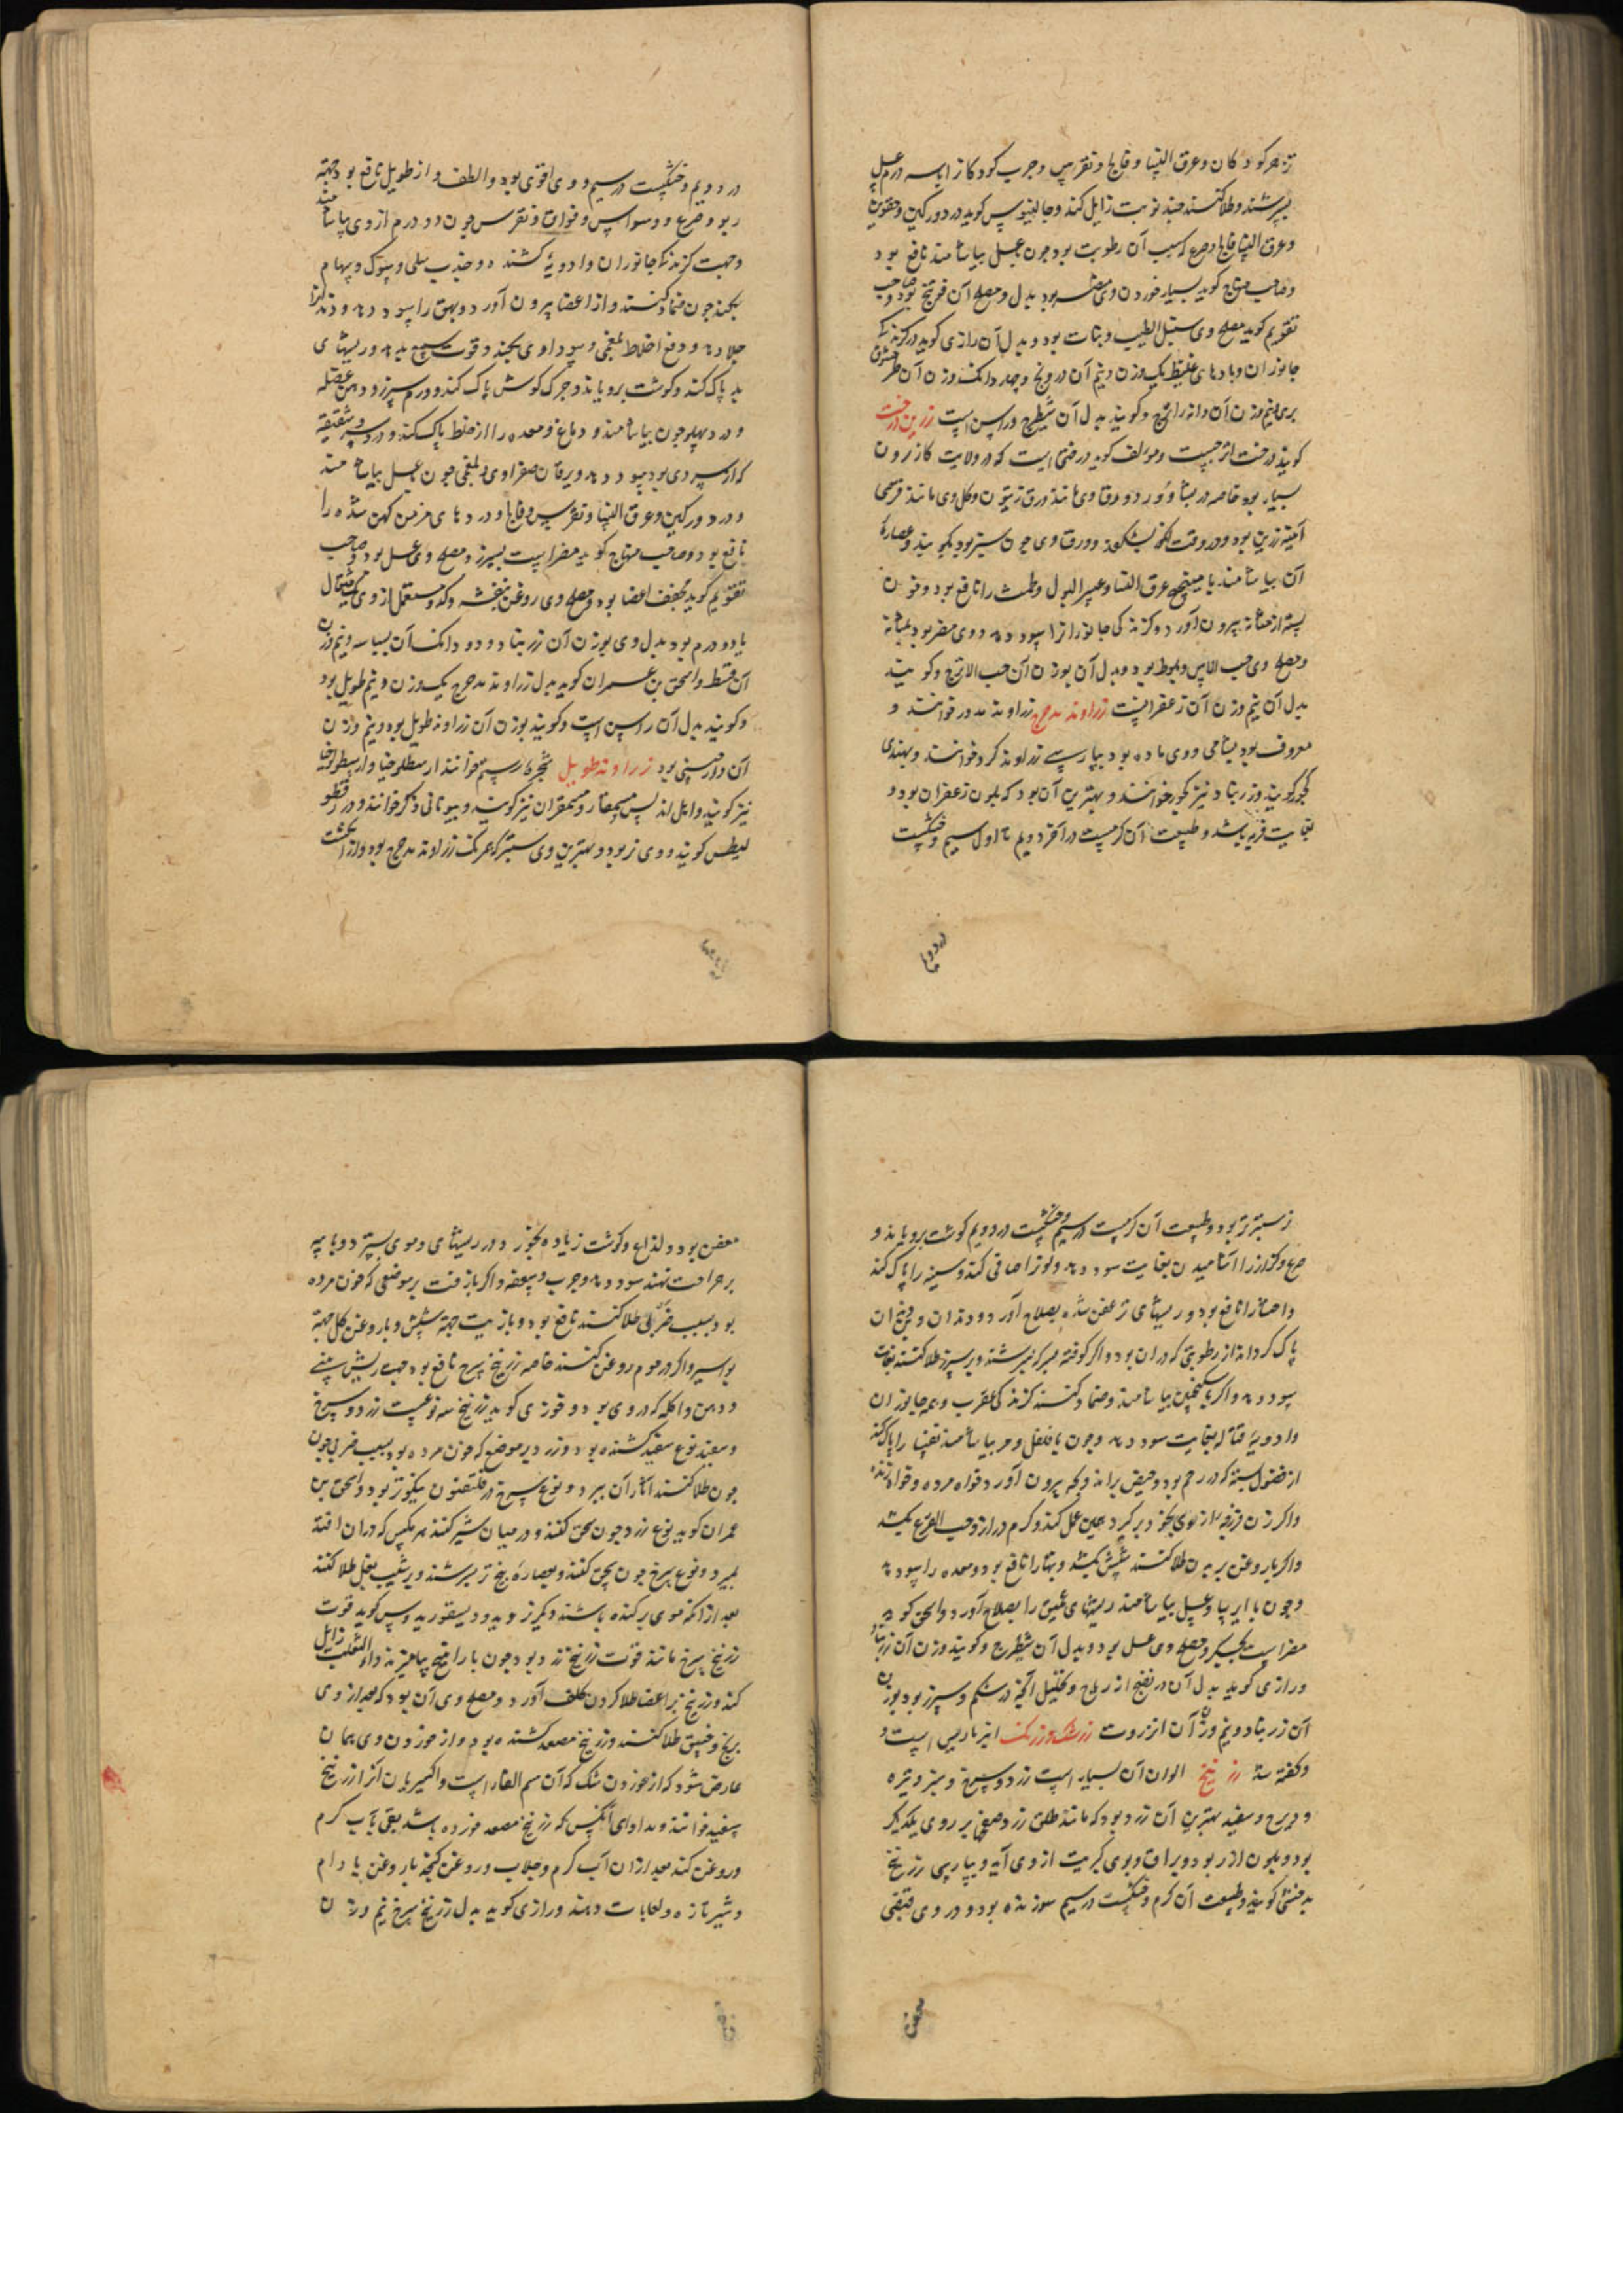 و عرق النسا و فالج و نقرس و جرب کودکان را
بسرشند و طلا کنند چند نوبت زایل کند و جالینوس کوید در درد ورکین
و عرق النسا که سبب آن رطوبت بود چون بعسل بیاشامند نافع بود
و صاحب منهاج کوید بسیار خوردن وی بود بدل و مصلح آن
تقویم کوید مصلح وی سنبل الطیب و نبات بود و بدل آن رازی کوید در
جانوران و بادهای غلیظ یک وزن و نیم آن درونج و چهار دانک وزن آن
بری نیم وزن آن دانه اترج و کویند بدل آن شیطرج و راسن است زرین درخت
کویند درخت اترجست و مولف کوید درختی است که در ولایت کازرون
بسیار بود خاصه در و ورق وی مانند ورق زیتون و کل وی مانند
زرین بود و در وقت بشکفد و ورق وی چون سبز بود بکوبند و عصاره
آن بیاشامند با میبختج عرق النسا و عسر البول و طمث را نافع بود و خون
بسته از مثانه بیرون آورد و کزندکی جانوران را سود دهد و وی مضر بود بمثانه
و مصلح وی حب الاس و بلوط بود و بدل آن بوزن آن حب الاترج و کویند
بدل آن نیم وزن آن زعفرانست زراوند مدحرج زراوند مدور خوانند و
معروف بود بشامی و وی ماده بود بپارسی زراوند کرد خوانند و بهندی
کچور کویند و زرنباد نیز کچور خوانند و بهترین آن بود که بلون زعفران بود و
بغایت فربه باشد و طبیعت آن کرمست در آخر دویم تا اول سیم و خشکست
در دویم و خشکست در سیم و وی اقوی بود و الطف و از طویل نافع بود جهة
ربو و صرع و وسواس و فواق و نقرس چون دو درم از وی بیاشامند
و جهت کزندکی جانوران و ادویه کشنده و جذب سلی و شوک و سهام
بکند چون ضماد کنند و از اعضا بیرون آورد و بهق را سود دهد و دندانرا
جلا دهد و دفع اخلاط بلغمی و سوداوی بکند و قوت سمع بدهد و ریشهای
بد پاک کند و کوشت برویاند و چرک کوش پاک کند و ورم سپرز و وهن عضله
و درد پهلو چون بیاشامند و دماغ و معده را از خلط پاک کند و درد سر و شقیقه
که از سردی بود سود دهد و یرقان صفراوی و بلغمی چون بعسل بیاشامند
و درد ورکین و عرق النسا و نقرس و فالج و دردهای مزمن کهن شده را
نافع بود و صاحب منهاج کوید مضر است بسپرز و مصلح وی عسل بود و صاحب
تقویم کوید مجفف اعضا بود و مصلح وی روغن بنفشه و کدو مستعمل از وی یک مثقال
یا دو درم بود بدل وی بوزن آن زرنباد و دو دانک آن بسباسه و نیم وزن
آن قسط و اسحق بن عمران کوید بدل زراوند مدحرج یک وزن و نیم طویل بود
و کویند بدل آن راسن است و کویند بوزن آن زراوند طویل بود و نیم وزن
آن دارچینی بود زراوند طویل شجره رستم خوانند ارسطلوخیا و ارسطولوخیا
نیز کویند و اهل اندلس مسمقار و مسمقران نیز کویند و بیونانی
کویند و وی نر بود و بهترین وی سبتر که همرنک زراوند مدحرج بود و از انکشت
سبتر تر بود و طبیعت آن کرمست در سیم و خشکست در دویم کوشت برویاند و
صرع و کزاز را آشامیدن بغایت سود دهد و لون را صافی کند و سینه را پاک کند
و نافع بود و ریشهای عفن شده بصلاح آورد و دندان و بن دندان
پاک کرداند از رطوبتی که در آن بود و اکر کوفته بسرکه بسرشند و بر سپرز طلا کنند بغایت
سود دهد و اکر با سکنجبین بیاشامند و ضماد کنند کزندکی عقرب و همه جانوران
و ادویه قتاله بغایت سود دهد و چون با فلفل و مر بیاشامند نفسا را پاک کند
از فضول بسته که در رحم بود و حیض براند و بچه بیرون آورد خواه مرده و خواه زنده
و اکر زن فرزجه از وی بخود برکیرد همین عمل کند و کرم دراز و حب القرع بکشد
و اکر با روغن بر بدن طلا کنند شپش بکشد و نافع بود و معده را سود دهد
و چون با ایرسا و عسل بیاشامند ریشهای عمیق را بصلاح آورد و اسحق کوید
مضر است بجگر و مصلح وی عسل بود و بدل آن شیطرج و کویند وزن آن زرنباد
و رازی کوید بدل آن در نفع از ریاح و تحلیل در شکم و سپرز بود بوزن
آن زرنباد و نیم وزن آن انزروت زرشک و زرنک انبرباریس است و
و کفته شد زرنیخ الوان آن بسیار است زرد و سرخ و سبز و تیره
و سفید بهترین آن زرد بود که مانند طلق زرد صفحی بر روی یکدیکر
بود و بلون از زر بود و براق و بوی کبریت از وی آید و بپارسی زرنیخ
کویند و طبیعت آن کرم و خشکست در سیم سوزنده بود و در وی قبضی
معفن بود و لذاع و کوشت زیاده بخورد و در ریشهای و موی بسترد و با پیه
بر جراحت نهند سود دهد و جرب و سعفه و اکر با زفت بر موضعی که خون مرده
بود بسبب ضربه طلا کنند نافع بود و با زیت جهة شپش و با روغن کل جهة
بواسیر و اکر در موم روغن کنند خاصه زرنیخ سرخ نافع بود جهت ریش بینی
و دهن و اکله که در وی بود و فوزی کوید زرنیخ سه نوعست زرد و سرخ
و سفید نوع سفید کشنده بود و زرد بر موضع که خون مرده بود بسبب ضربه چون
چون طلا کنند آثار آن ببرد و نوع سرخ در قلقدیون نیکوتر بود و اسحق بن
عمران کوید نوع زرد چون سحق کنند و در میان شیر کنند هر مکس که در آن افتد
بمیرد و نوع سرخ چون سحق کنند و بعصاره بنج تر بسرشند و بر شیب بغل طلا کنند
بعد از آنکه موی برکنده باشند دیکر نروید و دیسقوریدوس کوید قوت
زرنیخ سرخ مانند قوت زرنیخ زرد بود چون با راتینج بیامیزند داء الثعلب زایل
کند و زرنیخ بر اعضا طلا کردن کلف آورد و مصلح وی آن بود که بعد از وی
برنج و طلا کنند و زرنیخ مصعد کشنده بود و از خوردن وی همان
عارض شود که از خوردن شک که آن سم الفار است و اکسیریان آنرا زرنیخ
سفید خوانند و مداوای آنکس که زرنیخ مصعد خورده باشد بقی بآب کرم
و روغن کند بعد از آن آب کرم و جلاب و روغن کنجد یا روغن بادام
و شیر تازه و لعابات دهند و رازی کوید بدل زرنیخ سرخ نیم وزن